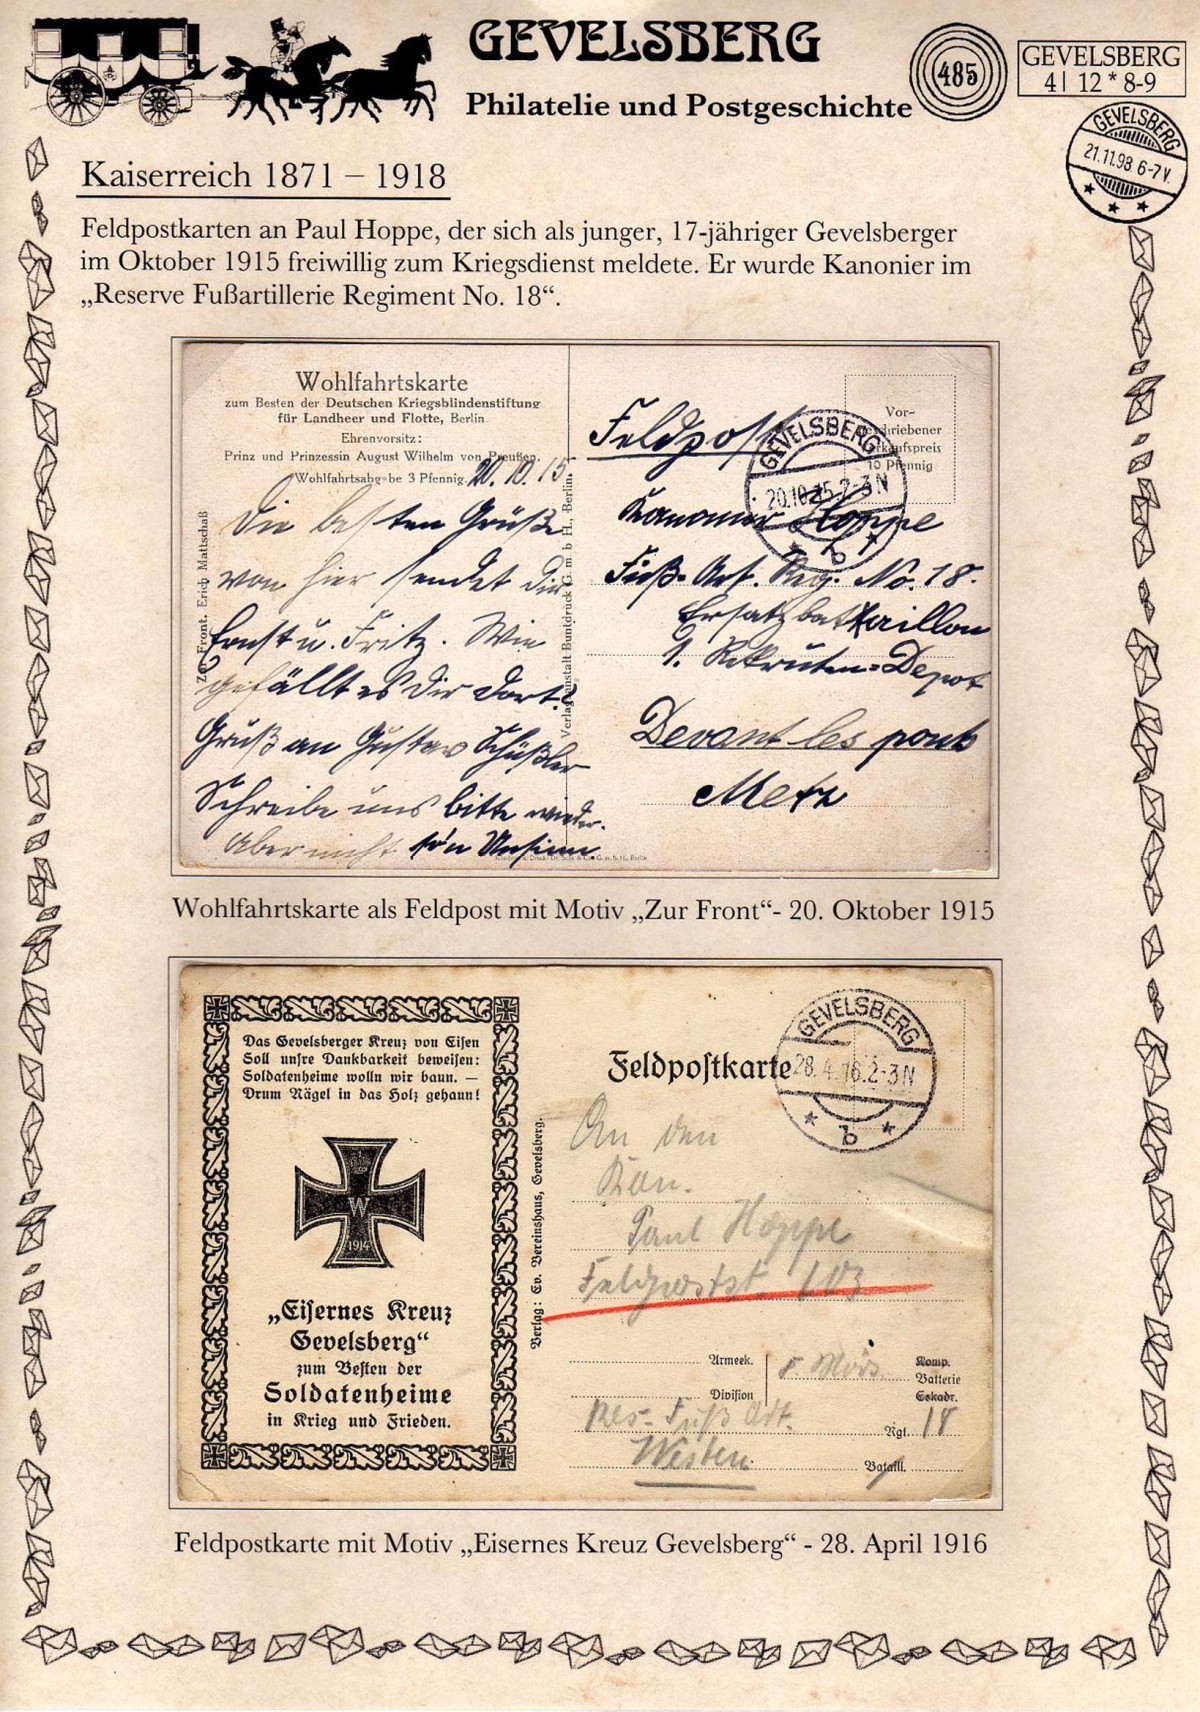 GEVELSBERG
Philatelie und Postgeschichte
485
GEVELSBERG
4| 12 * 8-9
GEVELSBERG
21.11.98. 6-7V.
Kaiserreich 1871 – 1918
Feldpostkarten an Paul Hoppe, der sich als junger, 17-jähriger Gevelsberger
im Oktober 1915 freiwillig zum Kriegsdienst meldete. Er wurde Kanonier im
„Reserve Fußartillerie Regiment No. 18“.
Wohlfahrtskarte
zum Besten der Deutschen Kriegsblindenstiftung
für Landheer und Flotte, Berlin
Ehrenvorsitz:
Prinz und Prinzessin August Wilhelm von Preußen.
Wohlfahrtsabgabe 3 Pfennig.
20.10.15.
Die besten Grüße
von hier sendet dir
Ernst u. Fritz. Wie
gefällt es Dir dort?
Gruß an Gustav Schüßler
Schreibe uns bitte wieder.
Aber nicht so'n Unsinn
Zur Front. Erich Mattschaß
Verlagsanstalt Buntdruck G. m. b H., Berlin.
Feldpost
Vor-
geschriebener
Verkaufspreis
10 Pfennig
GEVELSBERG
20.10.15.2-3N
* b *
Kanonier Hoppe
Fuß-Art. Reg. No. 18.
Ersatzbattaillon
1. Rekruten-Depot
Devant les ponts
Metz
Wohlfahrtskarte als Feldpost mit Motiv „Zur Front“- 20. Oktober 1915
Das Gevelsberger Kreuz von Eisen
Soll unsre Dankbarkeit beweisen:
Soldatenheime wolln wir baun. —
Drum Nägel in das Holz gehaun!
W
1914
„Eisernes Kreuz
Gevelsberg“
zum Besten der
Soldatenheime
in Krieg und Frieden.
Verlag: Ev. Vereinshaus, Gevelsberg.
Feldpostkarte
GEVELSBERG
28.4.16.2-3N
* b *
An den
Kan.
Paul Hoppe
Feldpostst.
Armeek.
Division
Komp.
Batterie
Eskadr.
Res. Fuß Art.
Rgt. 18
Westen
Bataill.
Feldpostkarte mit Motiv „Eisernes Kreuz Gevelsberg“ - 28. April 1916